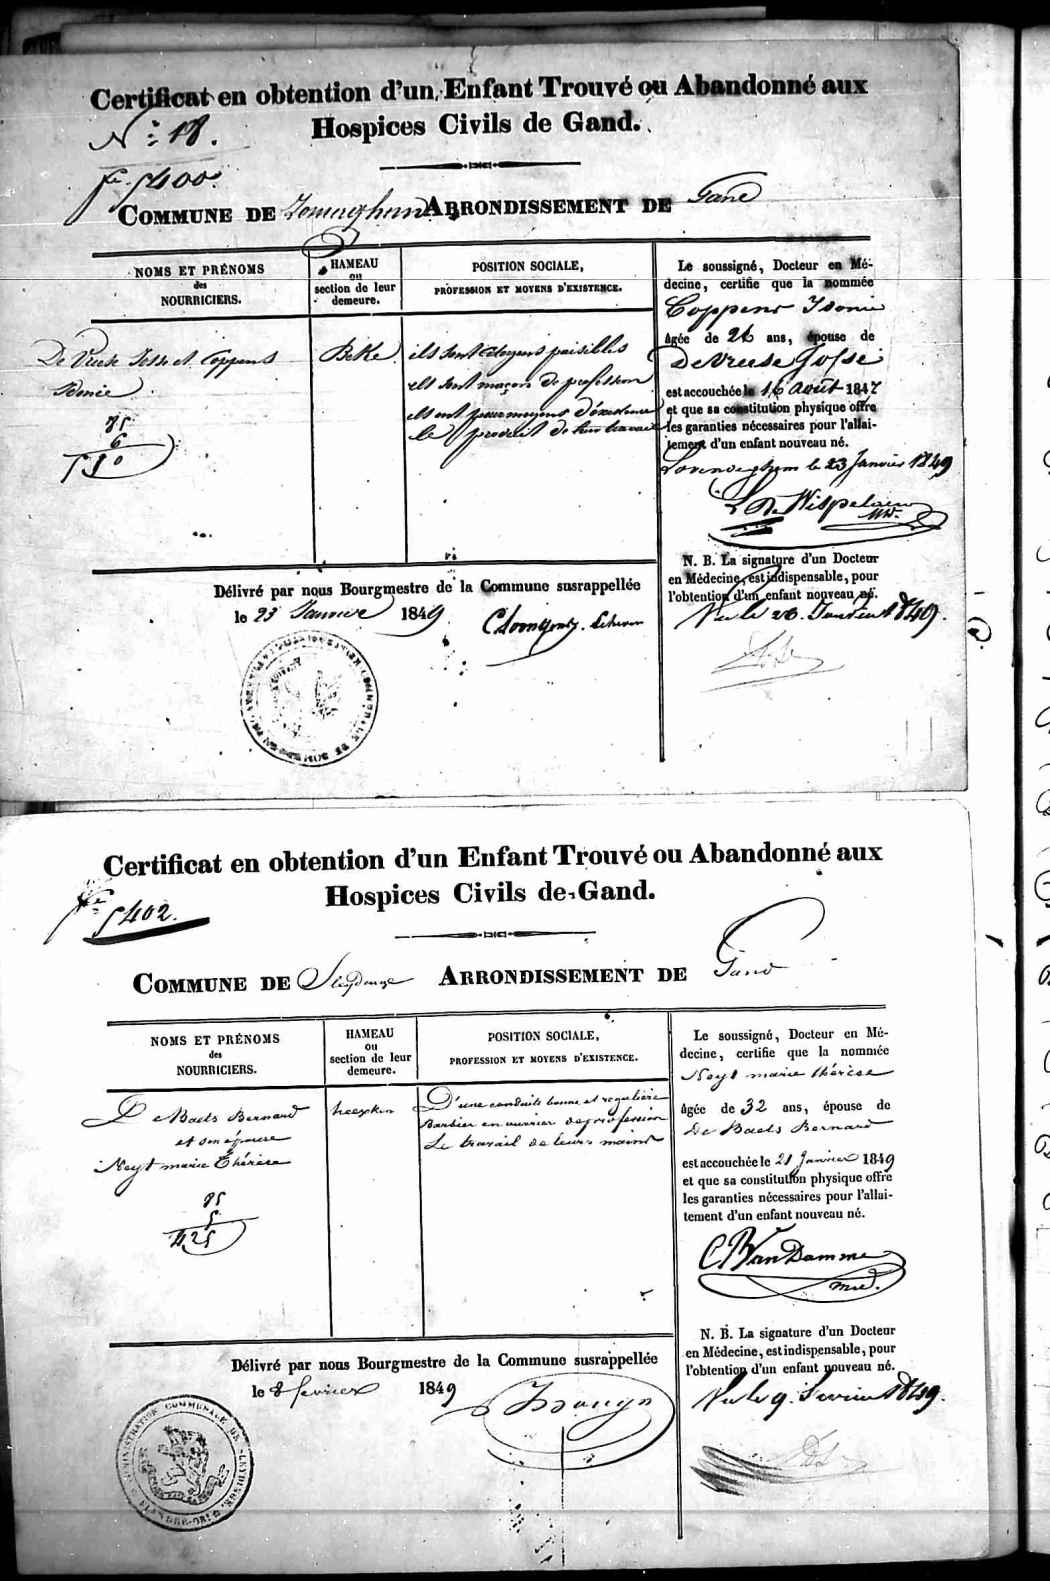 Certificat en obtention d'un Enfant Trouvé ou Abandonné aux
Hospices Civils de Gand.
N° 18.
fo 5400.
COMMUNE DE ARRONDISSEMENT DE Gand
NOMS ET PRÉNOMS
des
NOURRICIERS.
HAMEAU
ou
section de leur
demeure.
POSITION SOCIALE,
PROFESSION ET MOYENS D'EXISTENCE.
De Vriese Josse et Coppens
Idonie
85
6
510
Beke
ils sont citoyens paisibles
ils sont maçons de profession
ils ont pour moyens d'existence
le produit de leur travail
Le soussigné, Docteur en Mé-
decine, certifie que la nommée
Coppens Idonie
âgée de 26 ans, épouse de
De Vriese Josse
est accouchée le 16 août 1847
et que sa constitution physique offre
les garanties nécessaires pour l'allai-
tement d'un enfant nouveau né.
Lovendeghem le 23 Janvier 1849
De Wispelaere
N. B. La signature d'un Docteur
en Médecine, est indispensable, pour
l'obtention d'un enfant nouveau né.
Délivré par nous Bourgmestre de la Commune susrappellée
le 23 Janvier 1849
Vu le 26. Janvier 1849.
Certificat en obtention d'un Enfant Trouvé ou Abandonné aux
Hospices Civils de Gand.
fo 5402.
COMMUNE DE Sleydinge ARRONDISSEMENT DE Gand
NOMS ET PRÉNOMS
des
NOURRICIERS.
HAMEAU
ou
section de leur
demeure.
POSITION SOCIALE,
PROFESSION ET MOYENS D'EXISTENCE.
De Baets Bernard
et son épouse
Neyt marie Thérèse
85
5
425
D'une conduite bonne et régulière
Barbier en ouvrier de profession
Le travail de leurs mains
Le soussigné, Docteur en Mé-
decine, certifie que la nommée
Neyt marie thérèse
âgée de 32 ans, épouse de
De Baets Bernard
est accouchée le 21 Janvier 1849
et que sa constitution physique offre
les garanties nécessaires pour l'allai-
tement d'un enfant nouveau né.
C B Van Damme
md.
N. B. La signature d'un Docteur
en Médecine, est indispensable, pour
l'obtention d'un enfant nouveau né.
Délivré par nous Bourgmestre de la Commune susrappellée
le 8 février 1849
Vu le 9. Fevrier 1849.
ADMINISTRATION COMMUNALE DE SLEYDINGE